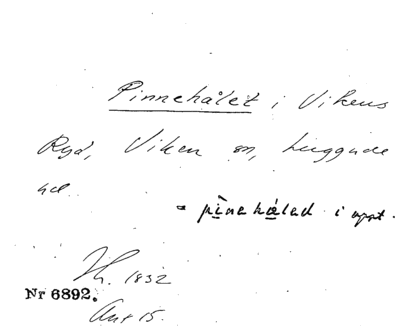 Pinnehålet i Vikens
Ryd, Viken sn, Luggude
hd.
= pìnehålad i uppt.
Th. 1832
Nr 6892.
Ant 15.